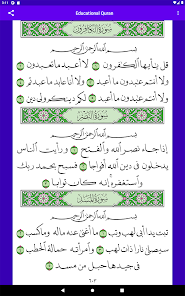 9:11
Educational Quran
سورة الكافرون
بسم الله الرحمن الرحيم
قل يأيها الكفرون لا أعبد ما تعبدون
ولا أنتم عبدون ما أعبد ولا أنا عابد ما عبدتم
ولا أنتم عبدون ما أعبد لكم دينكم ولي دين
سورة النصر
بسم الله الرحمن الرحيم
إذا جاء نصر الله والفتح ورأيت الناس
يدخلون في دين الله أفواجا فسبح بحمد ربك
واستغفره إنه كان توابا
سورة المسد
بسم الله الرحمن الرحيم
تبت يدا أبي لهب وتب ما أغنى عنه ماله وما كسب
سيصلى نارا ذات لهب وامرأته حمالة الحطب
في جيدها حبل من مسد
٦٠٣